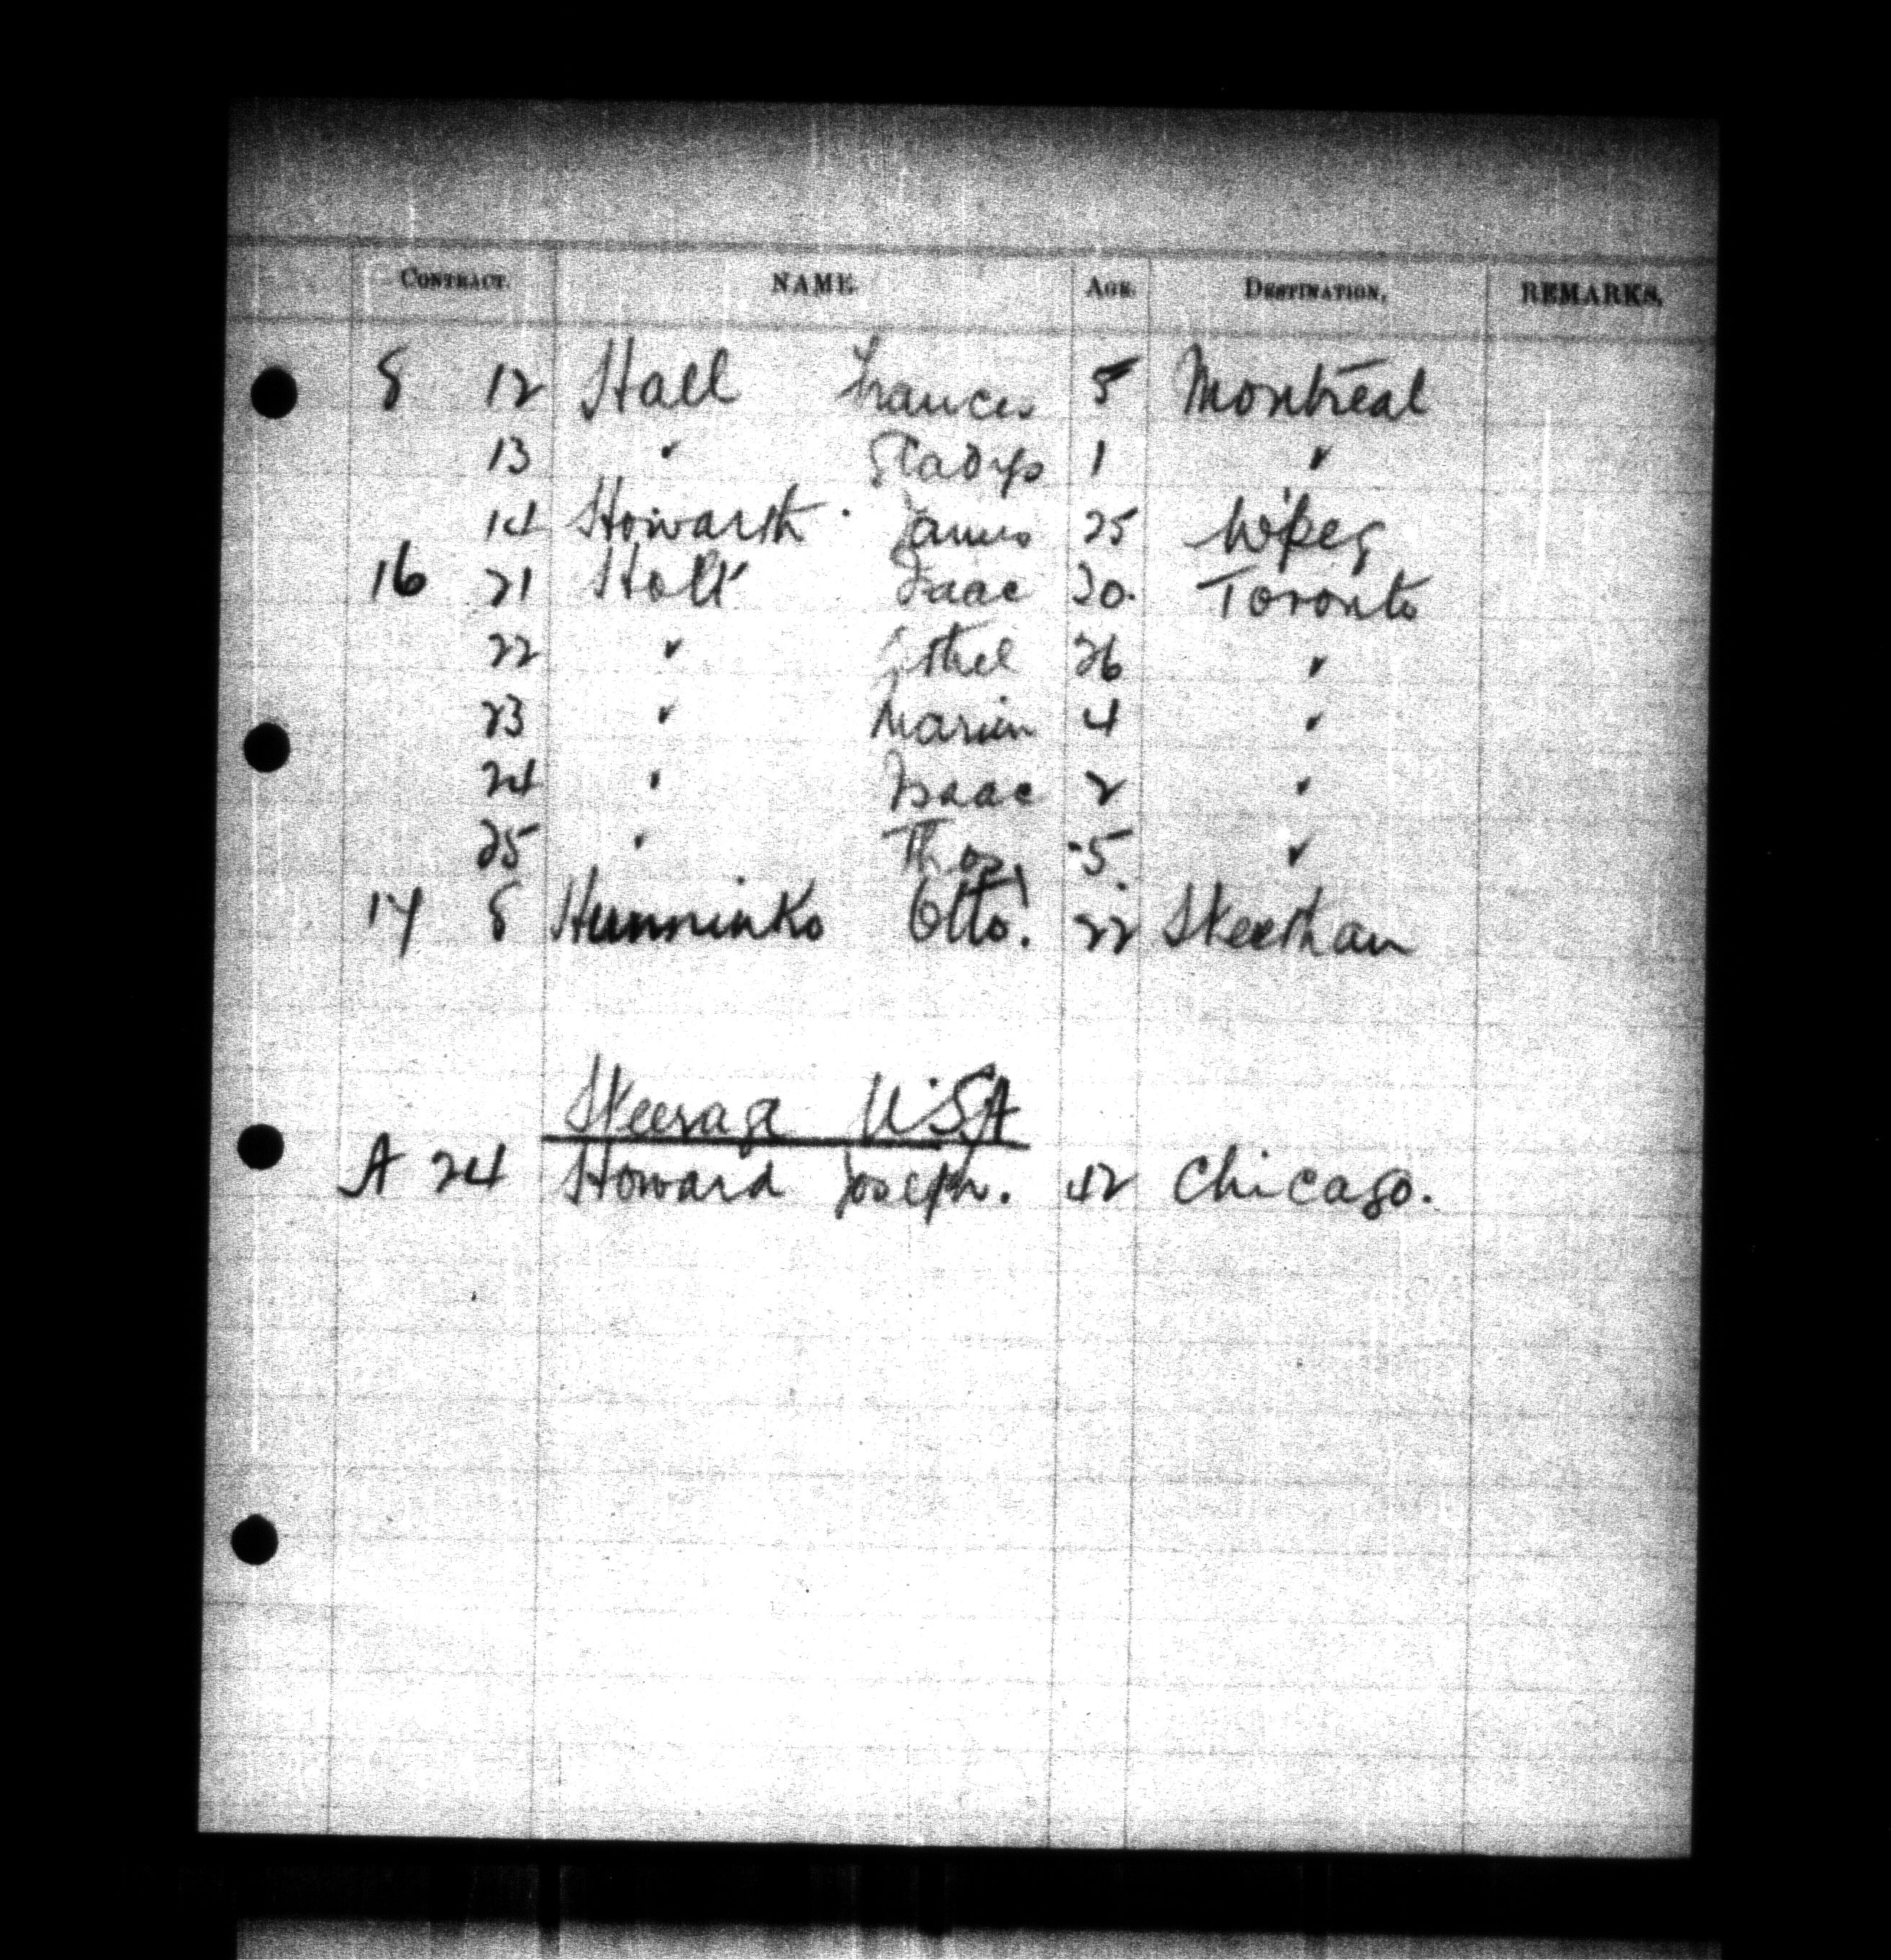 CONTRACT. NAME. AGE. DESTINATION. REMARKS.
8 12 Hall Frances 5 Montreal
13 " Gladys 1 "
14 Howarth James 25 W'peg
16 21 Holt Isaac 30. Toronto
22 " Ethel 26 "
23 " Marion 4 "
24 " Isaac 2 "
25 " Thos. 5 "
17 8 Otto. 22
Steerage USA
A 24 Howard Joseph. 42 Chicago.